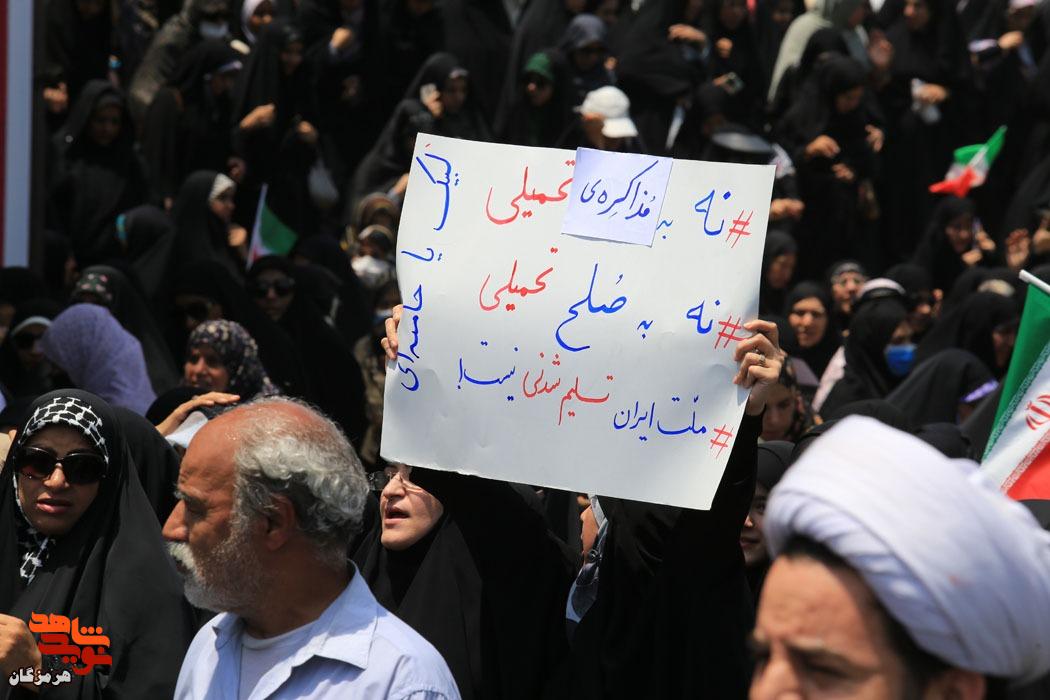 #نه به مذاکره‌ی تحمیلی
#نه به صُلح تحمیلی
#ملّت ایران تسلیم شدنی نیست!
لبیک یا خامنه‌ای
نوید شاهد
هرمزگان